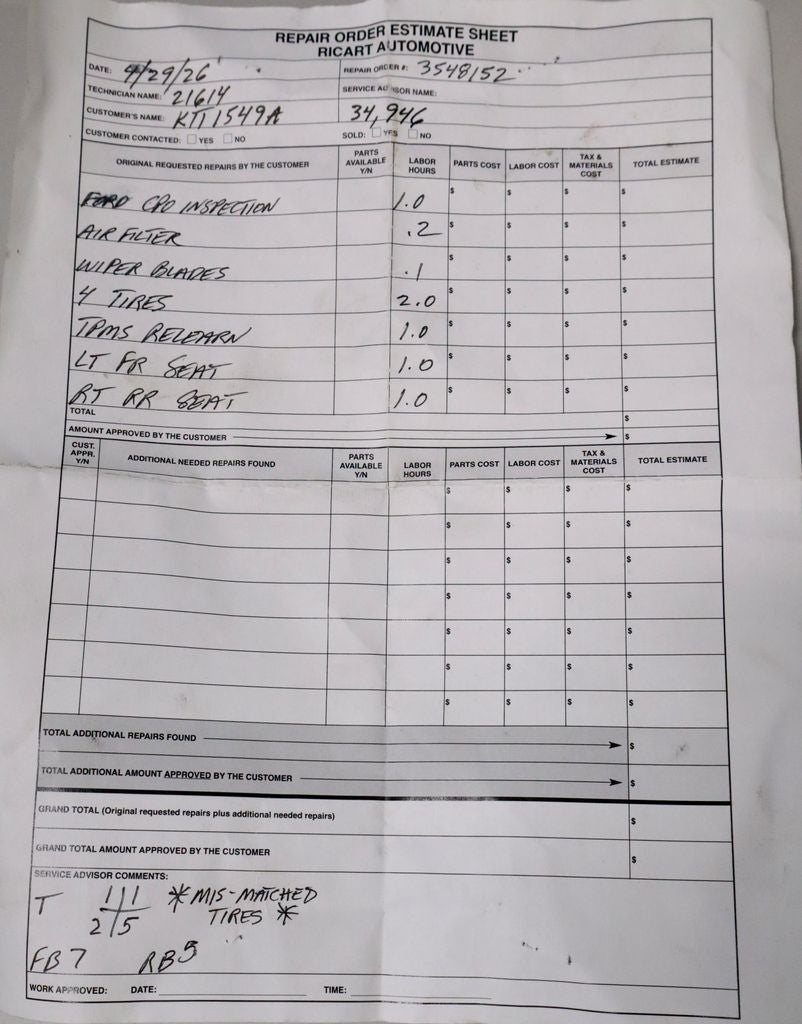 REPAIR ORDER ESTIMATE SHEET
RICART AUTOMOTIVE
DATE: 4/29/26 REPAIR ORDER #: 3548152
TECHNICIAN NAME: 21614 SERVICE ADVISOR NAME:
CUSTOMER'S NAME: KT11549A 34,946
CUSTOMER CONTACTED: YES NO SOLD: YES NO
ORIGINAL REQUESTED REPAIRS BY THE CUSTOMER PARTS AVAILABLE Y/N LABOR HOURS PARTS COST LABOR COST TAX & MATERIALS COST TOTAL ESTIMATE
FORD CPO INSPECTION 1.0 $ $ $ $
AIR FILTER .2 $ $ $ $
WIPER BLADES .1 $ $ $ $
4 TIRES 2.0 $ $ $ $
TPMS RELEARN 1.0 $ $ $ $
LT FR SEAT 1.0 $ $ $ $
RT RR SEAT 1.0 $ $ $ $
TOTAL $
AMOUNT APPROVED BY THE CUSTOMER $
CUST. APPR. Y/N ADDITIONAL NEEDED REPAIRS FOUND PARTS AVAILABLE Y/N LABOR HOURS PARTS COST LABOR COST TAX & MATERIALS COST TOTAL ESTIMATE
$ $ $ $
$ $ $ $
$ $ $ $
$ $ $ $
$ $ $ $
$ $ $ $
$ $ $ $
TOTAL ADDITIONAL REPAIRS FOUND $
TOTAL ADDITIONAL AMOUNT APPROVED BY THE CUSTOMER $
GRAND TOTAL (Original requested repairs plus additional needed repairs) $
GRAND TOTAL AMOUNT APPROVED BY THE CUSTOMER $
SERVICE ADVISOR COMMENTS:
T 11 1 *MIS-MATCHED
2 5 TIRES *
FB 7 RB 5
WORK APPROVED: DATE: TIME: